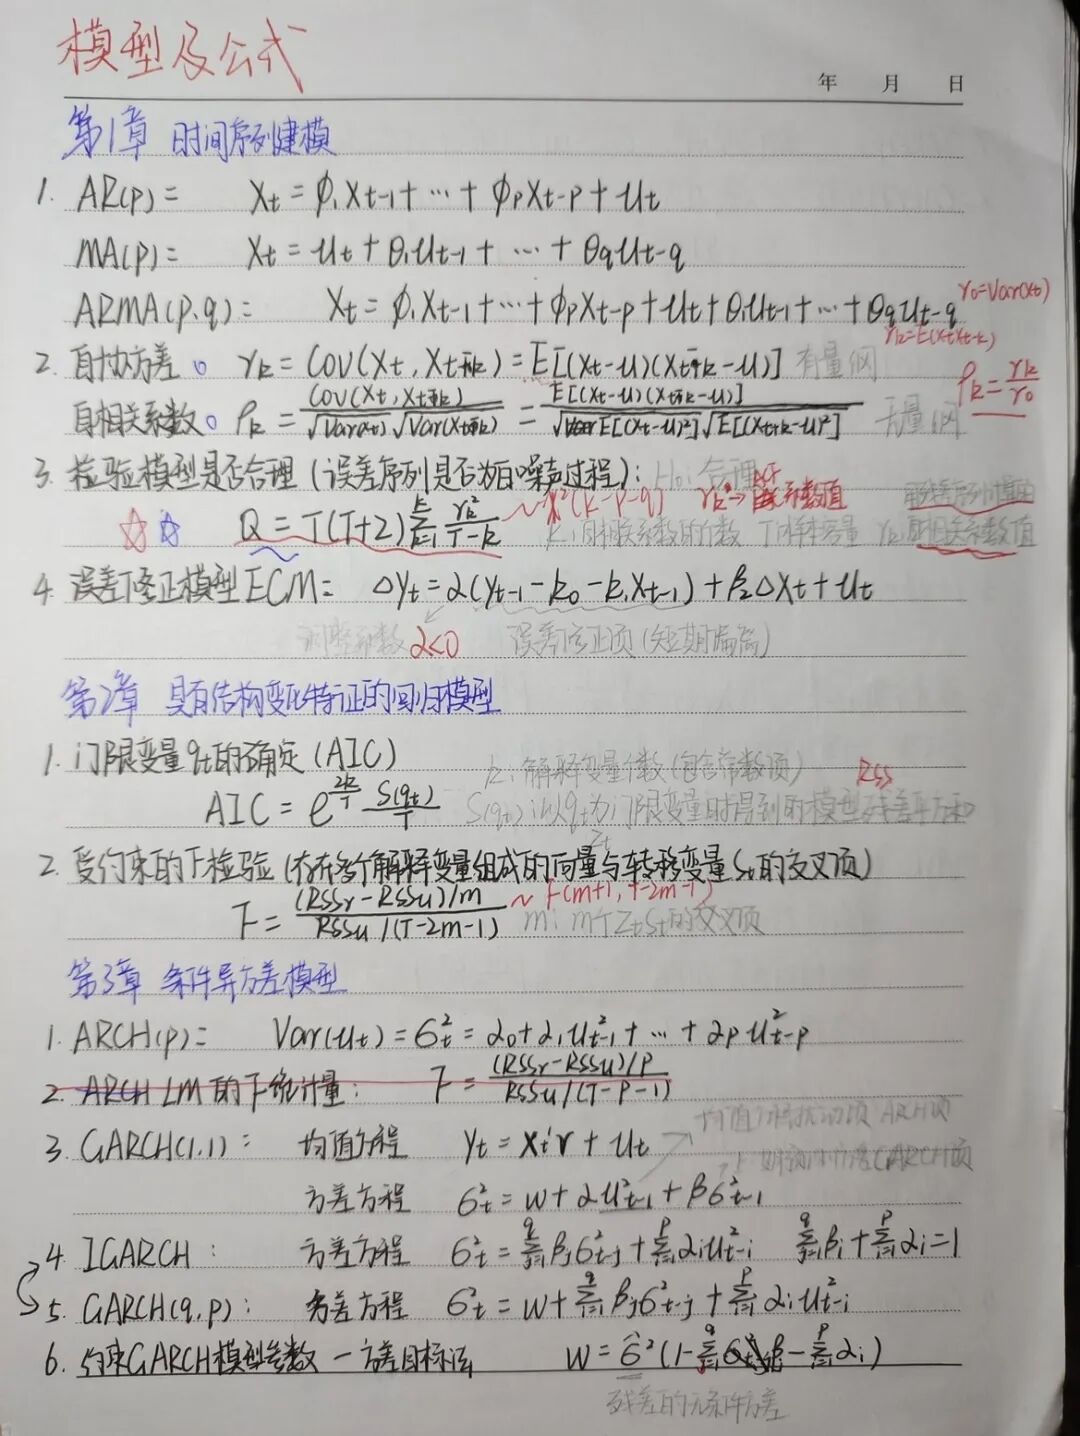 模型及公式
年 月 日
第1章 时间序列建模
1. AR(p)= Xt = ϕ1Xt-1 + … + ϕpXt-p + ut
MA(p)= Xt = ut + θ1ut-1 + … + θqut-q
ARMA(p,q): Xt = ϕ1Xt-1 + … + ϕpXt-p + ut + θ1ut-1 + … + θqut-q γ0=Var(Xt)
γk=E(XtXt-k)
2. 自协方差。 γk = Cov(Xt, Xt-k) = E[(Xt-u)(Xt-k-u)] 有量纲
自相关系数。 ρk = Cov(Xt, Xt-k) / √Var(Xt) √Var(Xt-k) = E[(Xt-u)(Xt-k-u)] / √E[(Xt-u)²] √E[(Xt+k-u)²] 无量纲 ρk = γk/γ0
3. 检验模型是否合理(误差序列是否为白噪声过程): H0:合理
☆☆ Q = T(T+2) Σ rk²/(T-k) ~ χ²(k-p-q) rk→自相关系数值
k:自相关系数的个数 T:样本容量 rk:自相关系数值
4. 误差修正模型ECM= ΔYt = α(Yt-1 - k0 - k1Xt-1) + β2ΔXt + ut
调整系数 α<0 误差修正项(短期偏离)
第2章 具有结构变化特征的回归模型
1. 门限变量qt的确定(AIC) k:解释变量个数(包含常数项) RSS
AIC = e^(2k/T) S(qt)/T S(qt):以qt为门限变量时得到的模型残差平方和
Zt
2. 受约束的F检验(存在多个解释变量组成的向量与转移变量St的交叉项)
F = (RSSr-RSSu)/m / RSSu/(T-2m-1) ~ F(m+1, T-2m-1) m:m个ZtSt的交叉项
第3章 条件异方差模型
1. ARCH(p)= Var(ut) = σt² = α0 + α1u²t-1 + … + αpu²t-p
2. ARCH LM的F统计量: F = (RSSr-RSSu)/P / RSSu/(T-P-1)
3. GARCH(1,1): 均值方程 Yt = Xt'r + ut
方差方程 σt² = w + αu²t-1 + βσ²t-1
4. IGARCH: 方差方程 σt² = Σ βjσ²t-j + Σ αiu²t-i Σ βi + Σ αi = 1
5. GARCH(q,p): 方差方程 σt² = w + Σ βjσ²t-j + Σ αiu²t-i
6. 约束GARCH模型参数-方差目标法 w = σ̂²(1 - Σ β - Σ αi)
残差的无条件方差